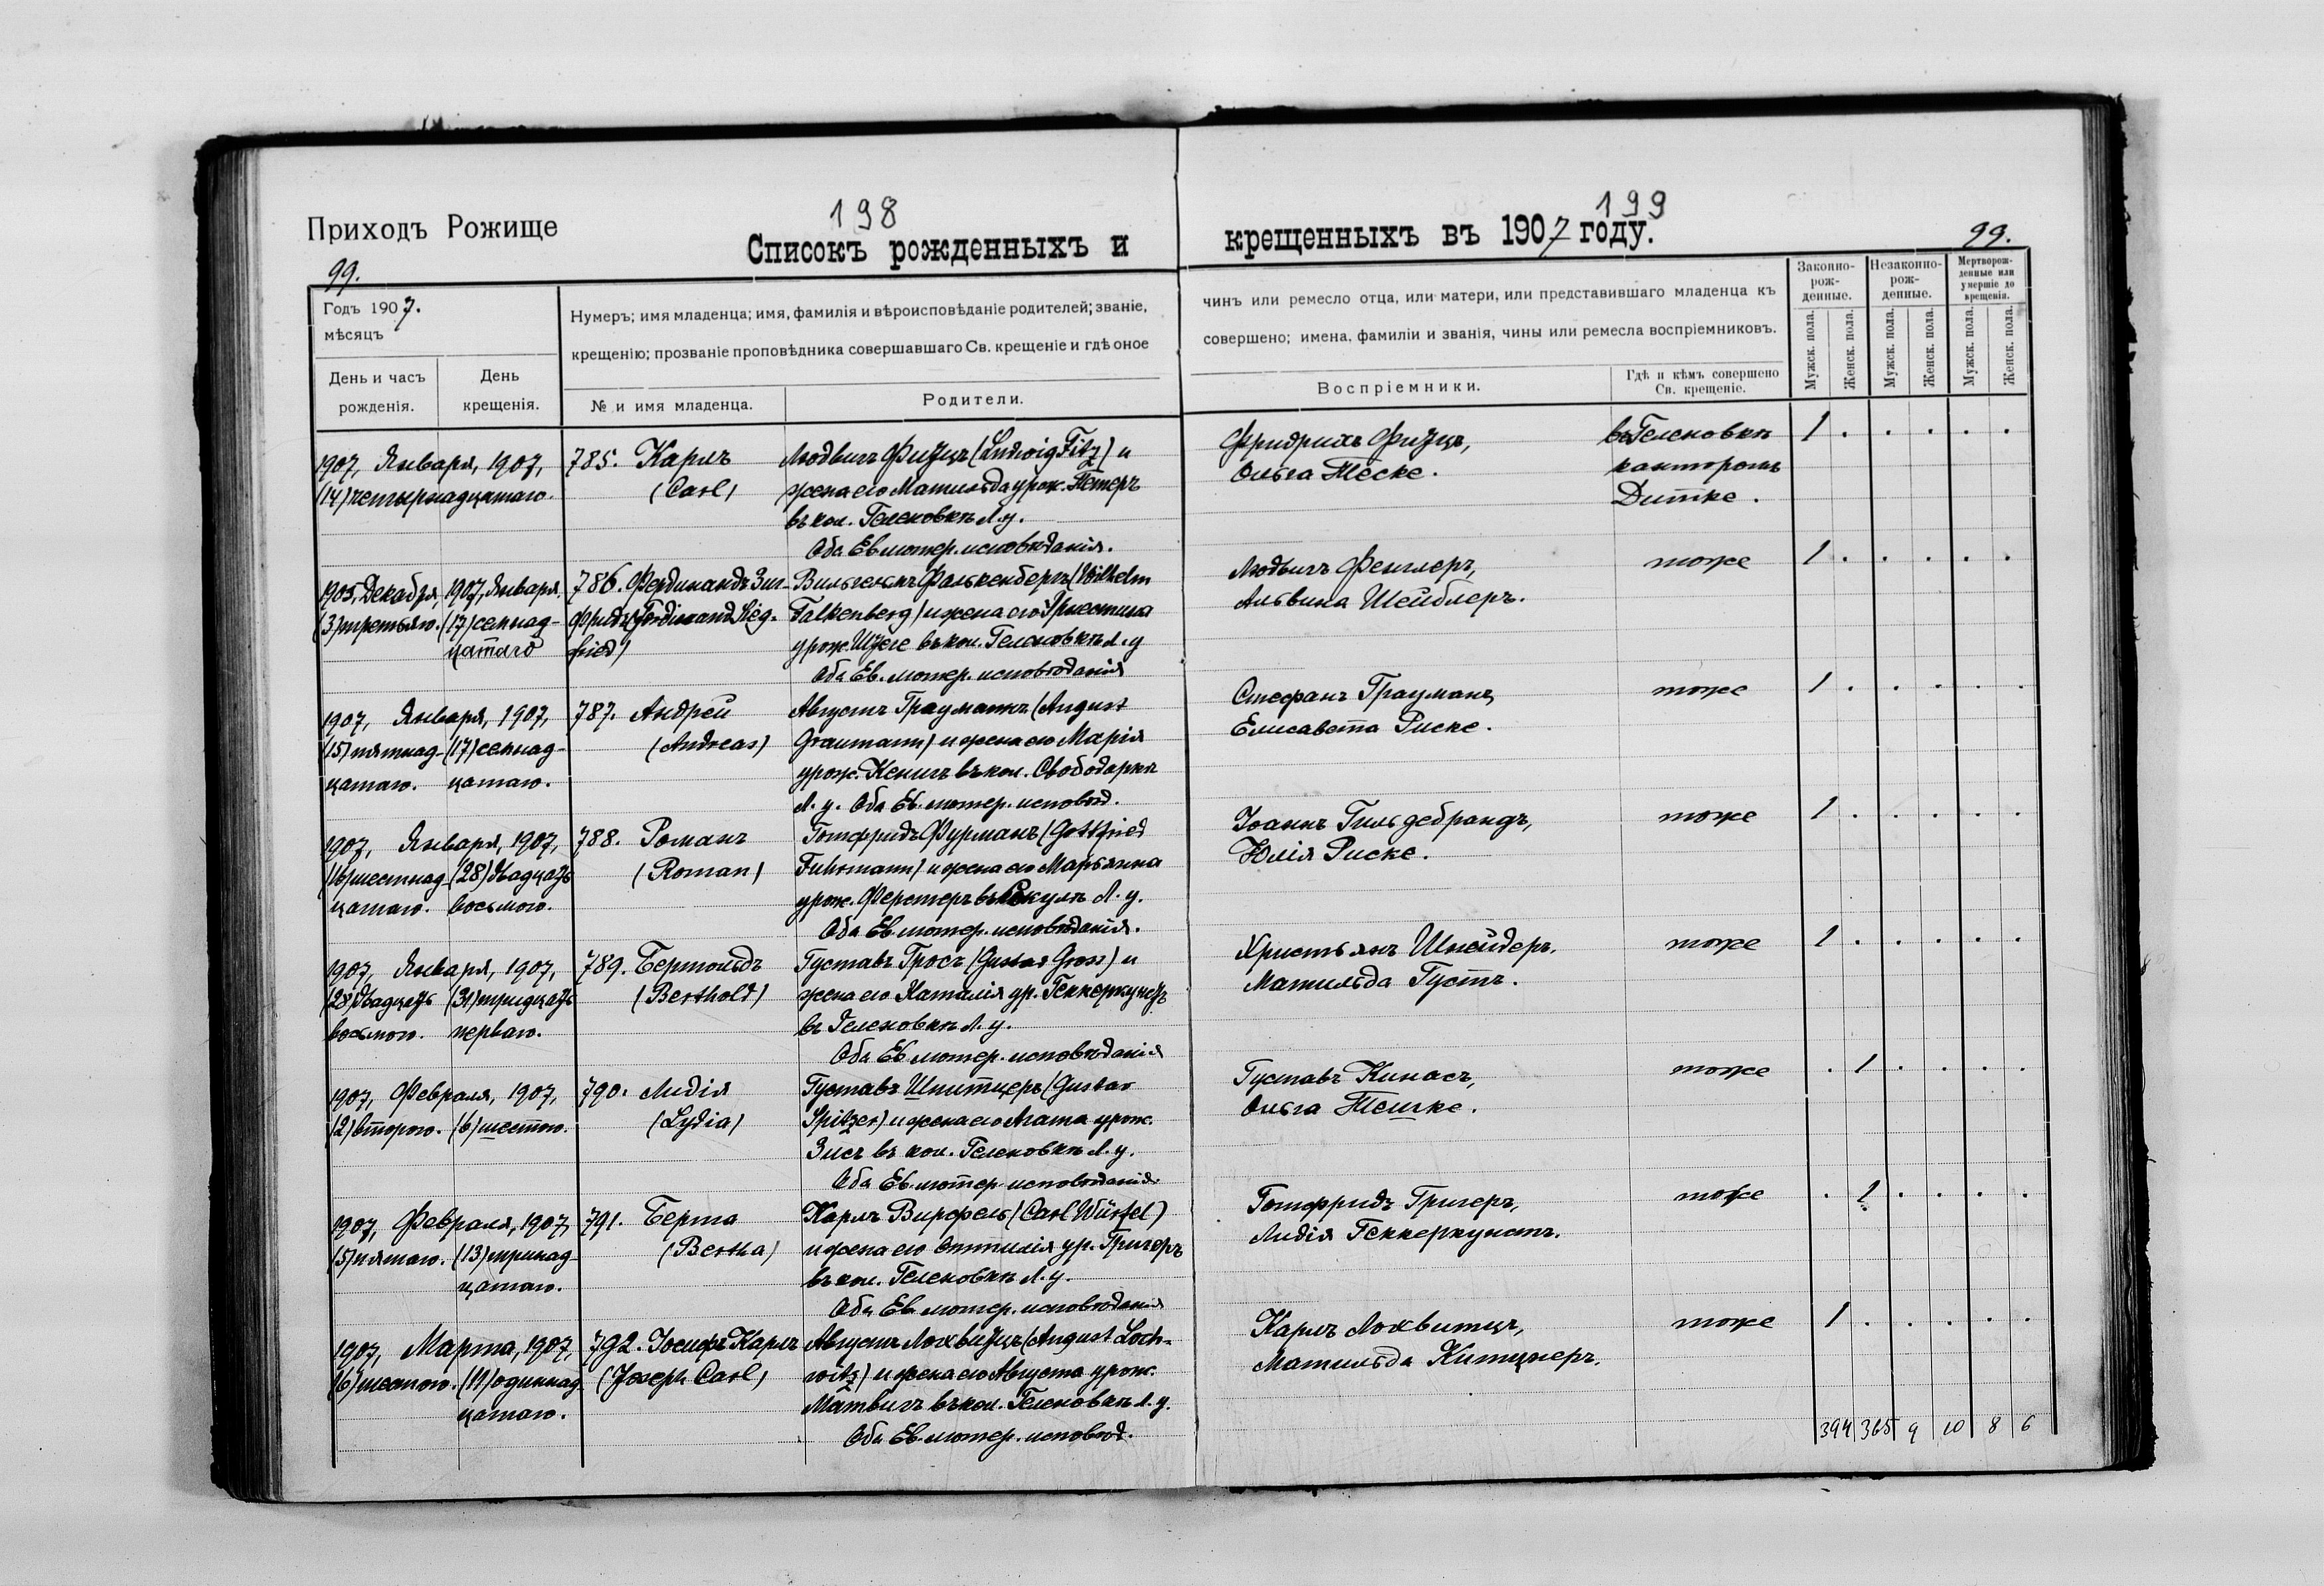 198
199
Приходъ Рожище
Списокъ рожденныхъ и
крещенныхъ въ 1907 году.
99.
99.
Годъ 1907.
мѣсяцъ
День и часъ
рожденія.
День
крещенія.
Нумеръ; имя младенца; имя, фамилія и вѣроисповѣданіе родителей; званіе,
крещенію; прозваніе проповѣдника совершавшаго Св. крещеніе и гдѣ оное
№ и имя младенца.
Родители.
чинъ или ремесло отца, или матери, или представившаго младенца къ
совершено; имена, фамиліи и званія, чины или ремесла воспріемниковъ.
Воспріемники.
Гдѣ и кѣмъ совершено
Св. крещеніе.
Законно-
рож-
денные.
Незаконно-
рож-
денные.
Мертворож-
денные или
умершіе до
крещенія.
Мужск. пола.
Женск. пола.
Мужск. пола.
Женск. пола.
Мужск. пола.
Женск. пола.
1907, Января, 1907,
(14) четырнадцатаго.
785. Карлъ
(Carl)
Людвигъ Фитцъ (Ludwig Fitz) и
жена его Матильда урож. Петеръ
въ кол. Геленовкѣ Л.у.
Оба Ев. лютер. исповѣданія.
Фридрихъ Фитцъ,
Ольга Теске.
въ Геленовкѣ
канторомъ
Дитке.
1 . . . . .
1905, Декабря,
(3) третьяго.
1907, Января,
(17) семнад-
цатаго
786. Фердинандъ Зиг-
фридъ (Ferdinand Sieg-
fried)
Вильгельмъ Фалькенбергъ (Wilhelm
Falkenberg) и жена его Эрнестина
въ кол. Геленовкѣ Л.у
Оба Ев. лютер. исповѣданія
Людвигъ Фенглеръ,
Альвина Шейблеръ.
тоже
1 . . . . .
1907, Января, 1907,
(15) пятнад-
цатаго.
(17) семнад-
цатаго.
787. Андрей
(Andreas)
Августъ Грауманъ (August
Graumann) и жена его Марія
урож. Кенигъ въ кол. Свободаркѣ
Л. у. Оба Ев. лютер. исповѣд.
Стефанъ Грауманъ,
Елисавета Риске.
тоже
1 . . . . .
1907, Января, 1907,
(16) шестнад-
цатаго.
(28) двадцать
восьмого.
788. Романъ
(Roman)
Готфридъ Фурманъ (Gottfried
Fuhrmann) и жена его Марьянна
урож. Ферстеръ Л. у.
Оба Ев. лютер. исповѣданія.
Іоаннъ Гильдебрандъ,
Юлія Риске.
тоже
1 . . . . .
1907, Января, 1907,
(28) двадцать
восьмого.
(31) тридцать
перваго.
789. Бертольдъ
(Berthold)
Густавъ Гросъ (Gustav Gross) и
жена его Наталія ур. Геккеркунстъ
въ Геленовкѣ Л. у.
Оба Ев. лютер. исповѣданія
Христьянъ Шнейдеръ,
Матильда Густъ.
тоже
1 . . . . .
1907, Февраля, 1907,
(2) второго.
(6) шестого.
790. Лидія
(Lydia)
Густавъ Шпитцеръ (Gustav
Spitzer) и жена его Агата урож.
Зисъ въ кол. Геленовкѣ Л. у.
Оба Ев. лютер. исповѣданія.
Густавъ Кинасъ,
Ольга Тешке.
тоже
. 1 . . . .
1907, Февраля, 1907,
(5) пятаго.
(13) тринад-
цатаго.
791. Берта
(Bertha)
Карлъ Вирфель (Carl Würfel)
и жена его Оттилія ур. Григеръ
въ кол. Геленовкѣ Л. у.
Оба Ев. лютер. исповѣданія
Готфридъ Григеръ,
Лидія Геккеркунстъ.
тоже
. 1 . . . .
1907, Марта, 1907,
(6) шестого.
(11) одиннад-
цатаго.
792. Іосифъ Карлъ
(Joseph Carl)
Августъ Лохвитцъ (August Loch-
witz) и жена его Августа урож.
Матвигъ въ кол. Геленовкѣ Л. у.
Оба Ев. лютер. исповѣд.
Карлъ Лохвитцъ,
Матильда Китцнеръ.
тоже
1 . . . . .
394 365 9 10 8 6